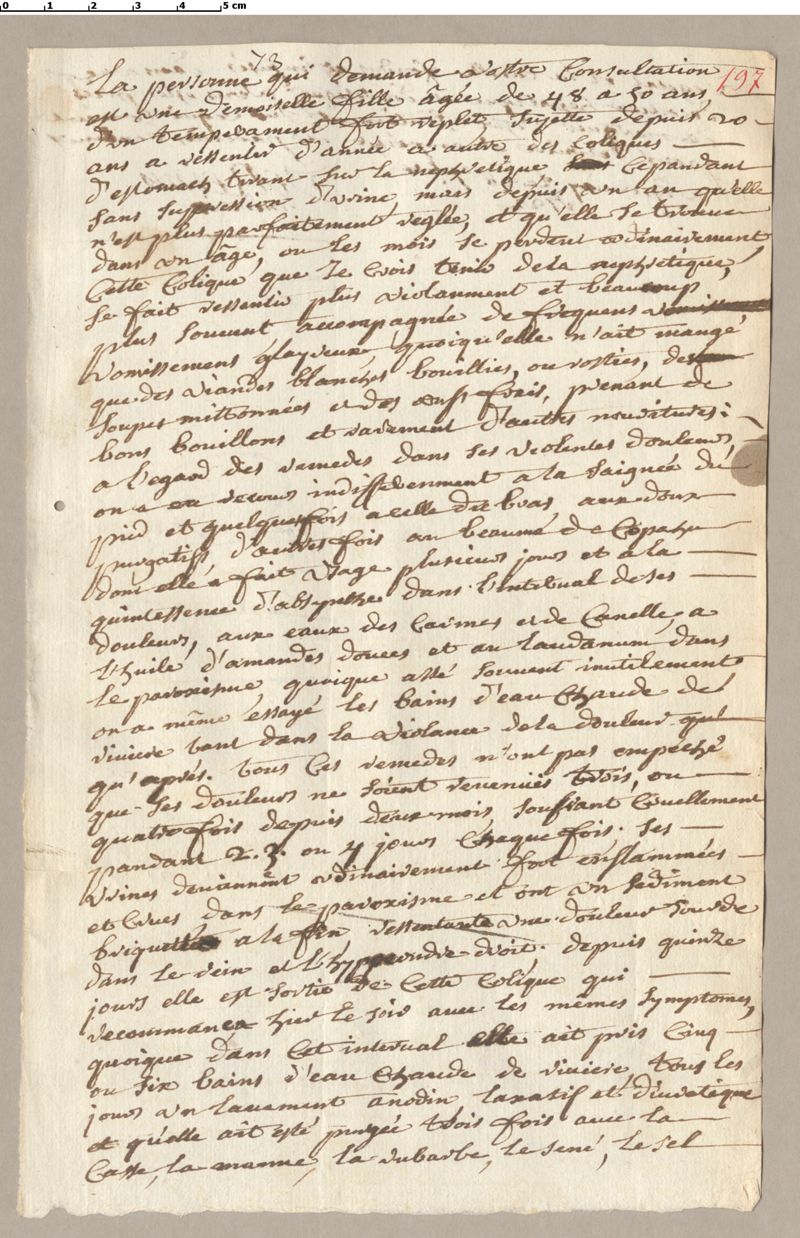 0 1 2 3 4 5 cm
73
197
La personne qui demande vostre Consultation
est une demoiselle fille âgée de 48 a 50 ans,
d'un temperament fort replet sujette depuis 20
ans a ressentir d'année a autre des Coliques
d'estomach tirant sur la nephretique Cepandant
sans suppression d'urine, mais depuis un an qu'elle
n'est plus parfaitement reglée, et qu'elle se trouve
dans un âge, ou les mois se perdent ordinairement,
Cette Colique que Je Crois tenir de la nephretique,
se fait ressentir plus violanment et beaucoup
plus souvent accompagnée de frequens
vomissemens glayreux, quoiqu'elle n'ait mangé
que des viandes blanches bouillies, ou rosties, des
soupes mittonnées et des œufs frais, prenant de
bons bouillons et rarement d'autres nourritures;
a l'egard des remedes dans ses violentes douleurs,
on a eu recours indifferenment a la saignée du
pied et quelquesfois a celle du bras, aux doux
purgatifs d'autres fois au beaume de Copahu
dont elle a fait usage plusieurs jours et a la
quintessence d'absynthe dans l'interval de ses
douleurs, aux eaux des Carmes et de Canelle, a
l'huile d'amandes douces et au laudanum dans
le paroxisme, quoique assé souvent inutilement
on a même essayé les bains d'eau Chaude de
riviere tant dans la violance de la douleur
qu'aprés. tous Ces remedes n'ont pas empeché
que ses douleurs ne soient revenuës trois, ou
quatre fois depuis deux mois, soufrant Cruellement
pandant 2. 3. ou 4 jours Chaque fois. Ses
urines deviannent ordinairement fort enflammées
et Crues dans le paroxisme et ont un sediment
a la fin ressentante une douleur sourde
dans le rein et l'hyppocondre droit. depuis quinze
jours elle est sortie de Cette Colique qui
recommança hier le soir avec les mêmes symptomes,
quoique dans Cet interval elle ait pris Cinq
ou six bains d'eau Chaude de riviere, tous les
jours un lavement anodin laxatif et diuretique
et qu'elle ait esté purgée trois fois avec la
Casse, la manne, la rubarbe, le sené, le sel